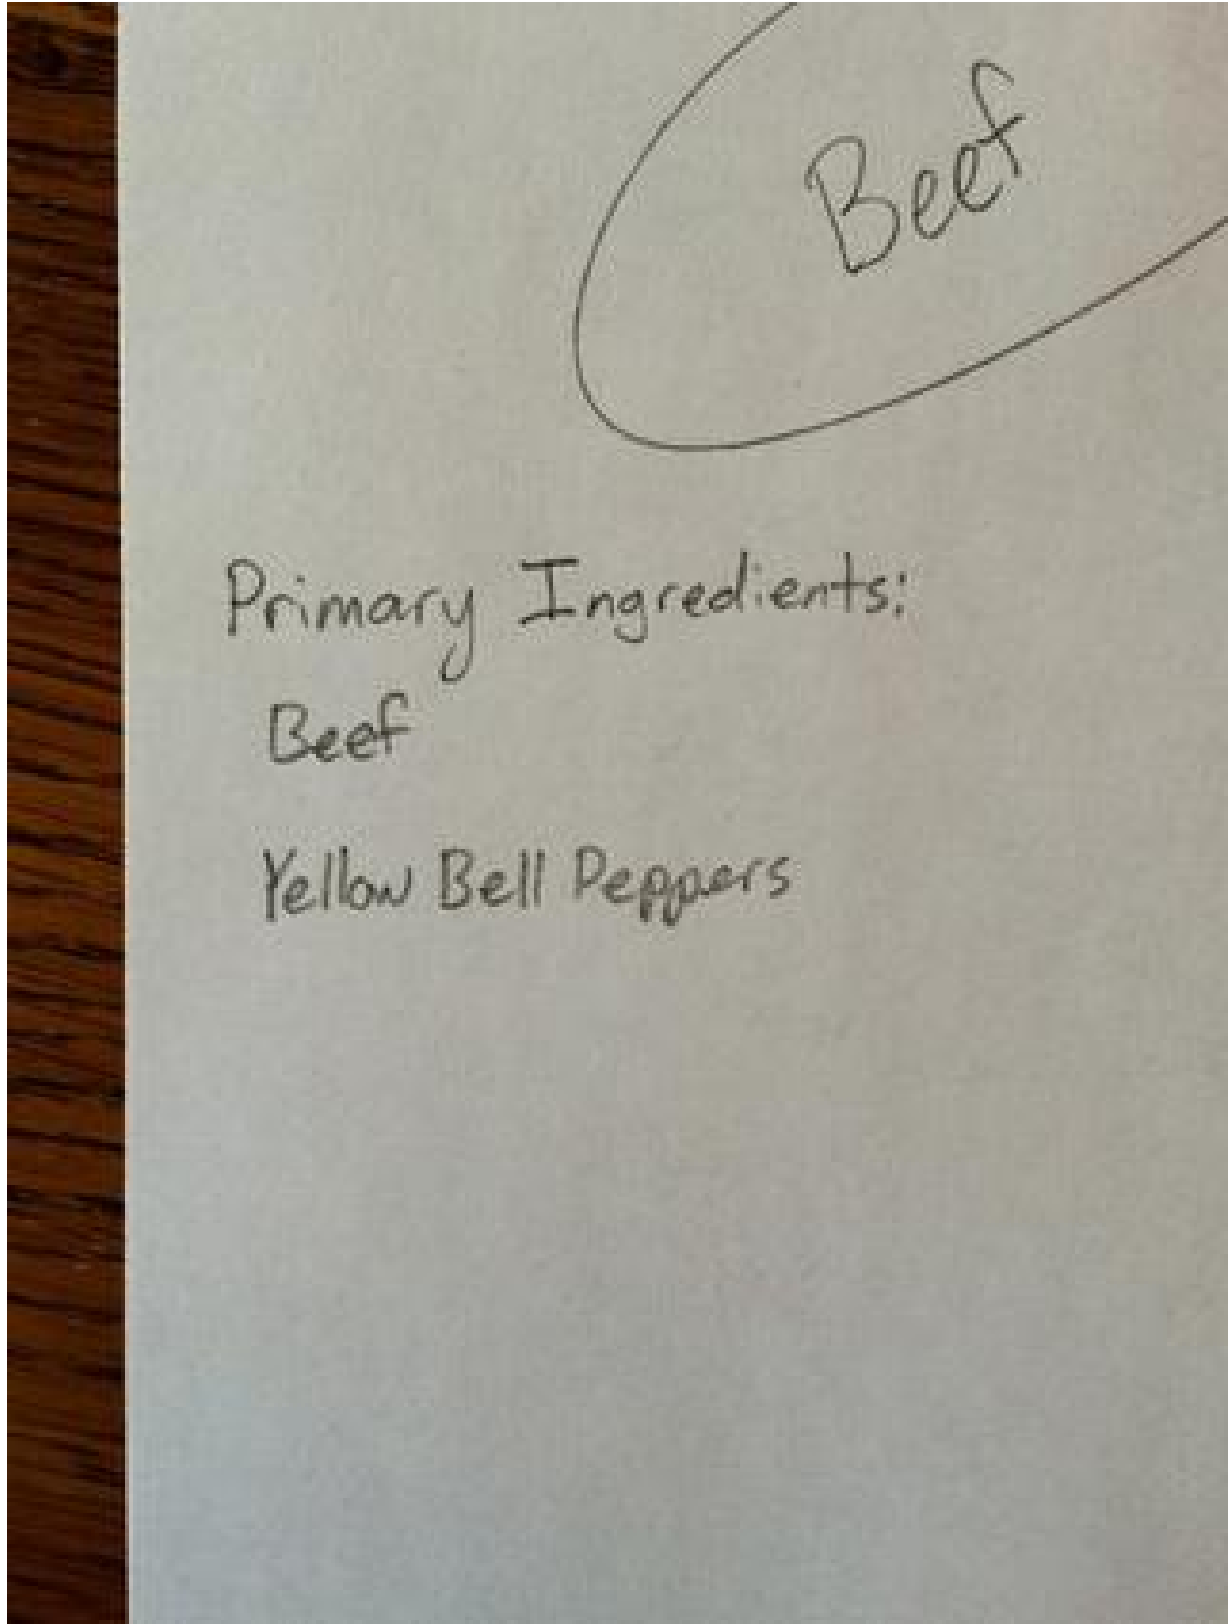 Beef
Primary Ingredients:
Beef
Yellow Bell Peppers